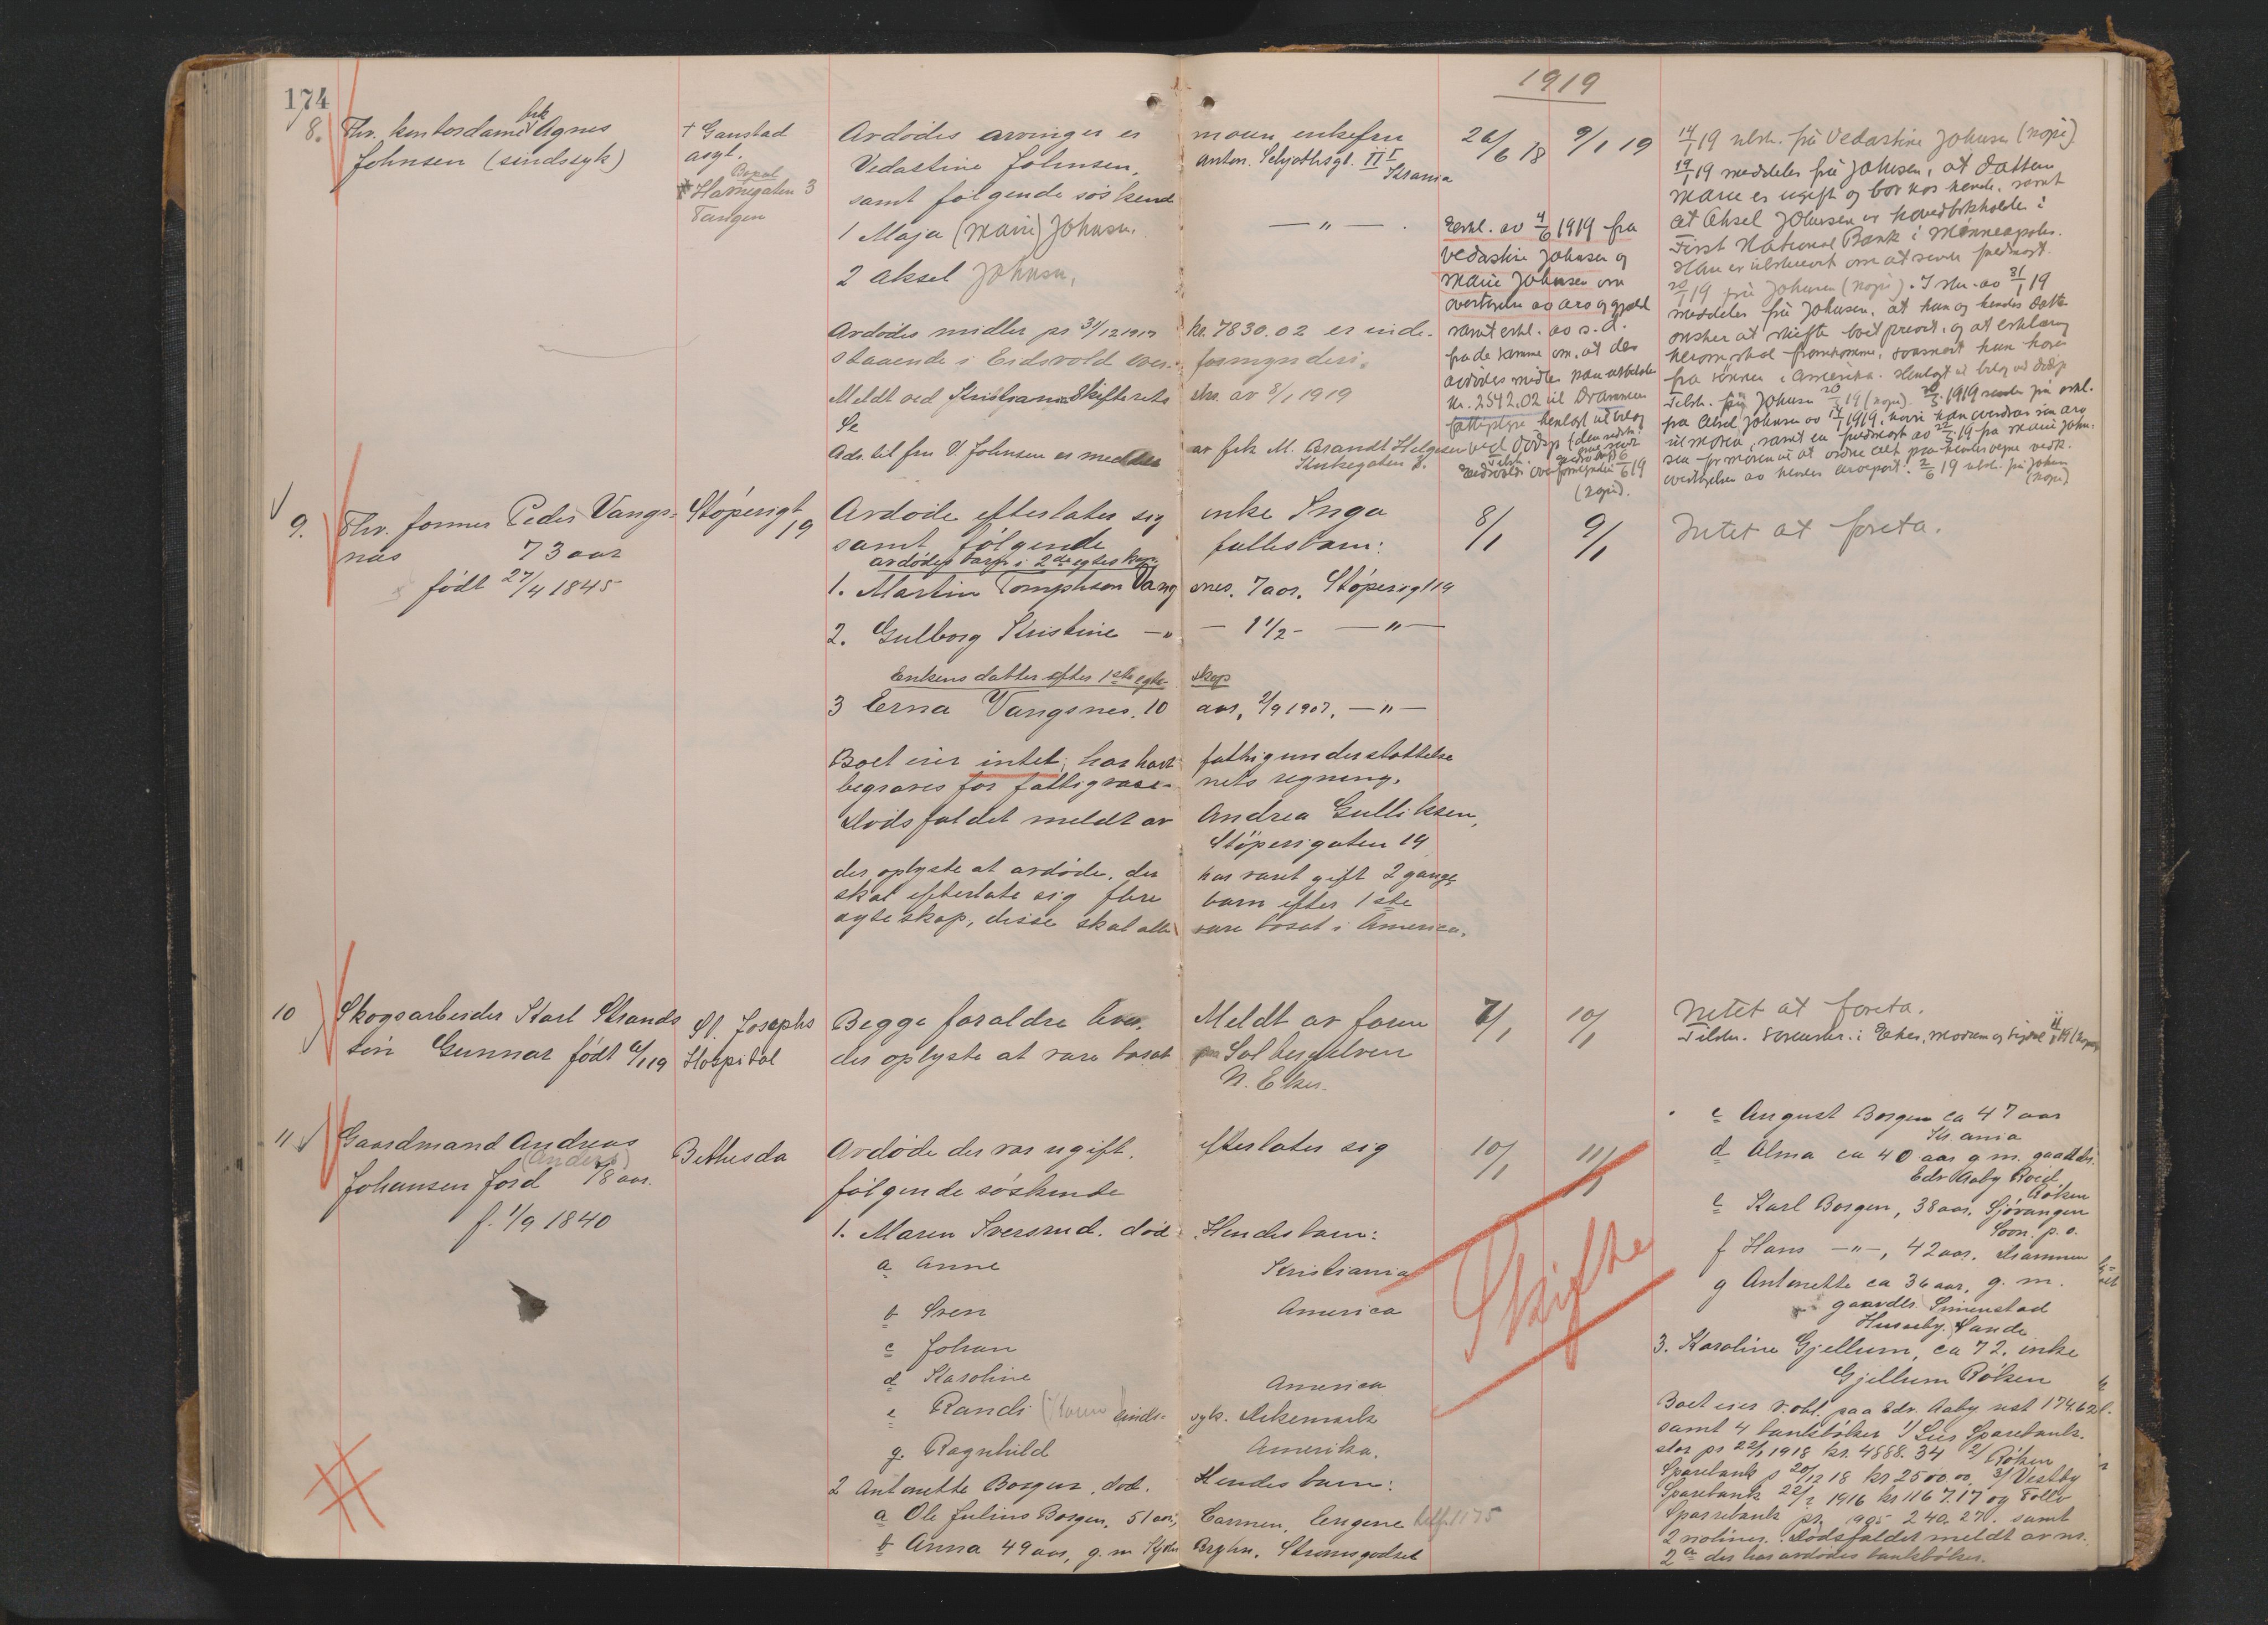 174
1919
8. Fhv. kontordame frk Agnes
Johnsen (sindssyk)
+ Gaustad
asyl.
Bopæl
Havnegaten 3
Tangen
Avdødes arvinger er moren enkefru
Vedastine Johnsen, Anton Schjøthsgt. II I Krania
samt følgende søskende
1 Maja (Marie) Johnsen. — " —
2 Aksel Johnsen,
Avdødes midler pr 31/12 1917 kr. 7830.02 er inde-
staaende i Eidsvold over- formynderi.
Meldt ved Kristiania Skifterets skr. av 8/1 1919
Se
Adr. til fru V. Johnsen er meddelt av frk M. Brandt Helgesen
Kirkegaten 8.
26/6 18
9/1 19
Erkl. av 4/6 1919 fra
Vedastine Johnsen og
Marie Johnsen om
overtagelse av arv og gjæld
samt erkl. av s.d.
fra de samme om, at den
avdødes midler kan utbetales
Kr. 2542.02 til Drammens
(kopi).
14/1 19 tilskr. fru Vedastine Johnsen (kopi)
19/1 19 meddeler fru Johnsen, at datteren
Marie er ugift og bor hos hende, samt
at Aksel Johnsen er hovedbokholder i
First National Bank i Minneapolis.
Han er tilskrevet om at sende fuldmagt.
20/1 19 fru Johnsen (kopi). I skr. av 31/1 19
meddeler fru Johnsen, at hun og hendes datter
ønsker at skifte boet privat, og at erklæring
herom skal fremkomme, saasnart hun hører
fra sønnen i Amerika. Henlagt
Tilskr. fru Johnsen (kopi). 1919 sender fru erkl.
fra Aksel Johnsen av 1919, hvori han overdrar sin arv
til moren, samt en fuldmagt av 19 fra Marie John-
sen for moren til at ordne alt paa hendes vegne vedk.
overtagelsen av hendes arvepart. 2/6 19 tilskr. fru Johnsen
(kopi)
9. Fhv. former Peder Vangs-
næs 73 aar
født 27/4 1845
Støperigt
19
Avdøde efterlater sig enke Inga
samt følgende fællesbarn:
avdødes barn i 2det egteskap
1. Martin Tomphson Vang snes. 7 aar. Støperigt 19
2. Gulborg Kristine — " — 1 1/2 - — " —
Enkens datter efter 1ste egte- skap
3 Erna Vangsnes. 10 aar, 2/9 1907. — " —
Boet eier intet; har hat fattigunderstøttelse
begraves for fattigvæse- nets regning.
Dødsfaldet meldt av Andrea Gulliksen,
Støperigaten 19
der oplyste at avdøde, der har været gift 2 gange
skal efterlate sig flere barn efter 1ste
egteskap, disse skal alle være bosat i America.
8/1
9/1
Intet at foreta.
10 Skogsarbeider Karl Strands
søn Gunnar født 6/1 19
St. Josephs
Hospital
Begge forældre lever, Meldt av faren
der oplyste at være bosat paa Solbergelven
N. Eker.
7/1
10/1
Intet at foreta.
Tilskr. sorenskr. i Eker, Modum og Sigdal 11/1 19 (kopi)
11 Gaardmand Andreas
(Anders)
Johansen Jord 78 aar.
f. 1/9 1840
Bethesda
Avdøde der var ugift, efterlater sig
følgende søskende
1. Maren Iversrud. død Hendes barn:
a Anne Kristiania
b Sven America
c Johan
d Karoline America
e Randi (Karen) sinds- syk. Dikemark
g. Ragnhild Amerika.
2 Antonette Borgen, død. Hendes barn:
a Ole Julius Borgen, 51 aar, Carmen, Engene telf. 1175
b Anna 49 aar, g. m. Bryhn, Strømsgodset
10/1
11/1
Skifte
c August Borgen ca 47 aar
Kr. ania
d Alma ca 40 aar g. m. gaardbr.
Edv Aaby Roed,
Røken
e Karl Borgen, 38 aar, Sjøvangen
Soon p. o.
f Hans — " —, 42 aar. Drammen
g Antonette ca 36 aar, g. m.
gaardbr. Simenstad
Husebye. Sande
3. Karoline Gjellum, ca 72. enke
Gjellum Røken
Boet eier v. obl. paa Edv. Aaby rest
samt 4 bankbøker 1/ Lier Sparebank.
stor pr 22/1 1918 kr. 4888.34 2/ Røken
Sparebank p 20/12 18 kr 2500.00 3/ Vestby
Sparebank 22/2 1916 kr 1167.17 og Follo
Sparebank pr. 1905 240.27. samt
2 Dødsfaldet meldt av nr.
2 a der har avdødes bankbøker.